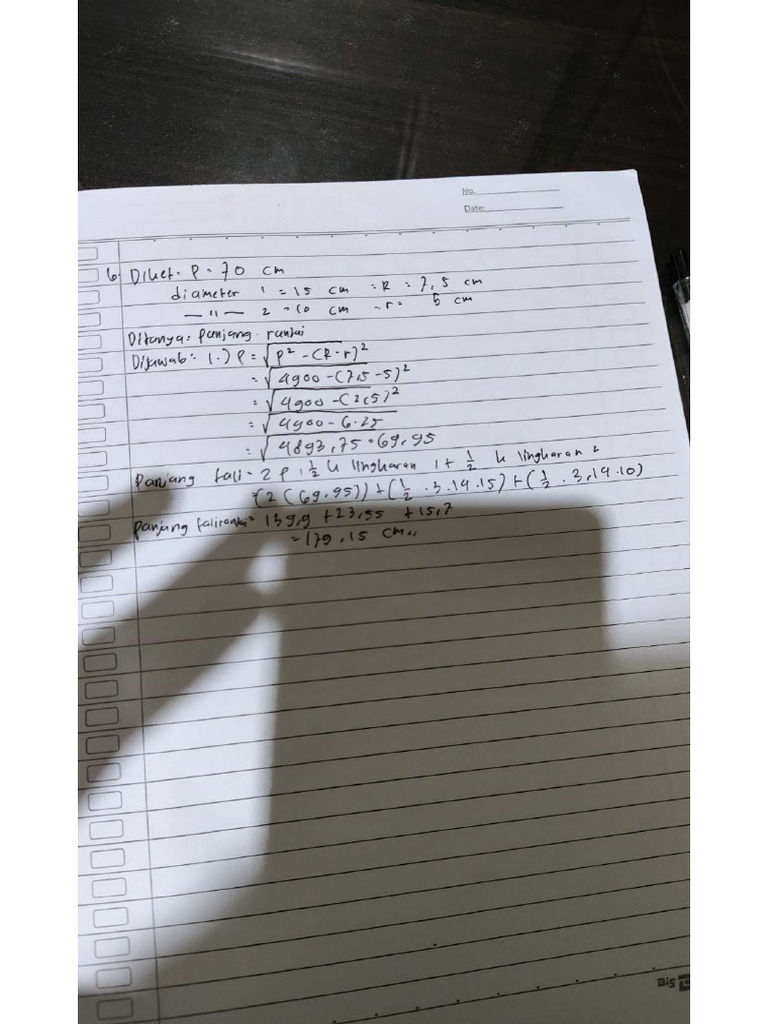 No.
Date:
6. Diket. P = 70 cm
diameter 1 = 15 cm = R = 7,5 cm
— " — 2 = 10 cm = r = 5 cm
Ditanya: Panjang rantai
Dijawab: 1.) P = √P² - (R - r)²
= √4900 - (7,5 - 5)²
= √4900 - (2,5)²
= √4900 - 6.25
= √4893,75 = 69,95
Panjang tali = 2 P + ½ k lingkaran 1 + ½ k lingkaran 2
= (2 (69.95)) + (½ . 3.14.15) + (½ . 3,14.10)
Panjang tali rantai = 139,9 + 23,55 + 15,7
= 179,15 cm,,